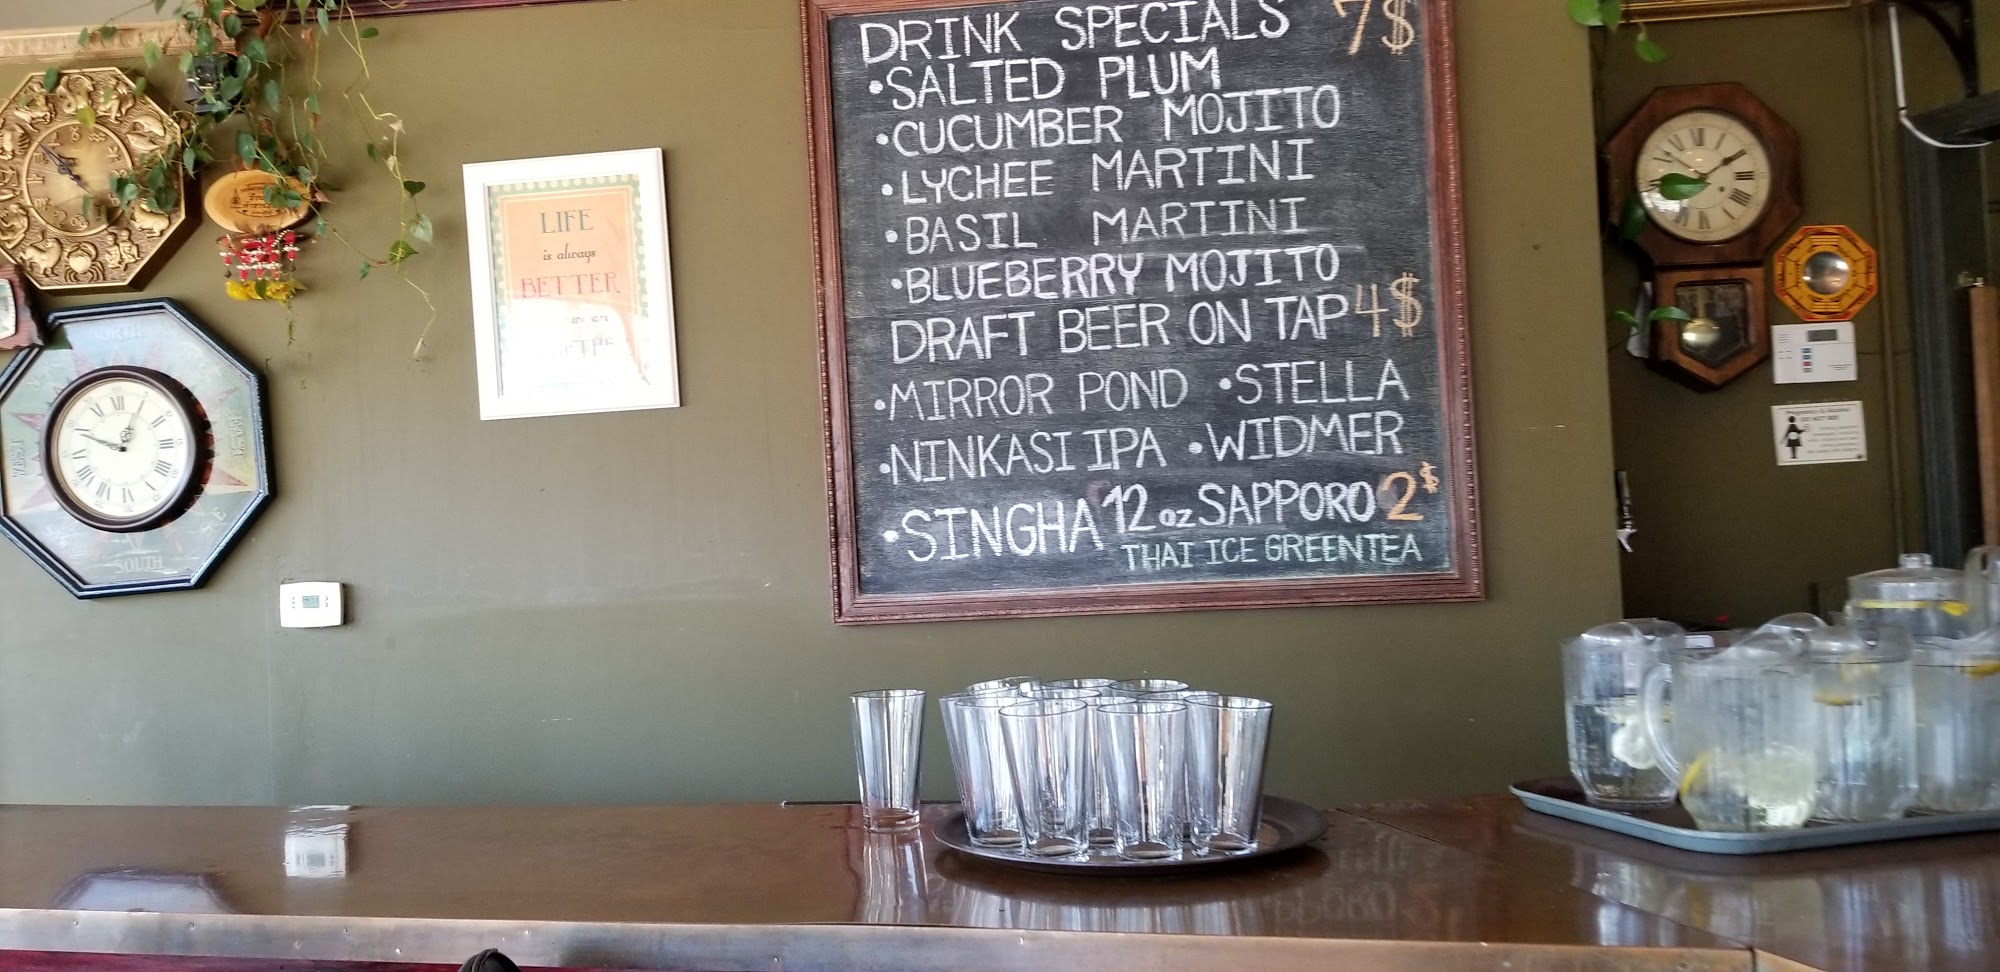 DRINK SPECIALS 7$
•SALTED PLUM
•CUCUMBER MOJITO
•LYCHEE MARTINI
•BASIL MARTINI
•BLUEBERRY MOJITO
DRAFT BEER ON TAP 4$
•MIRROR POND •STELLA
•NINKASI IPA •WIDMER
•SINGHA 12oz SAPPORO 2$
THAI ICE GREENTEA
LIFE
is always
BETTER
NORTH
WEST
EAST
SOUTH